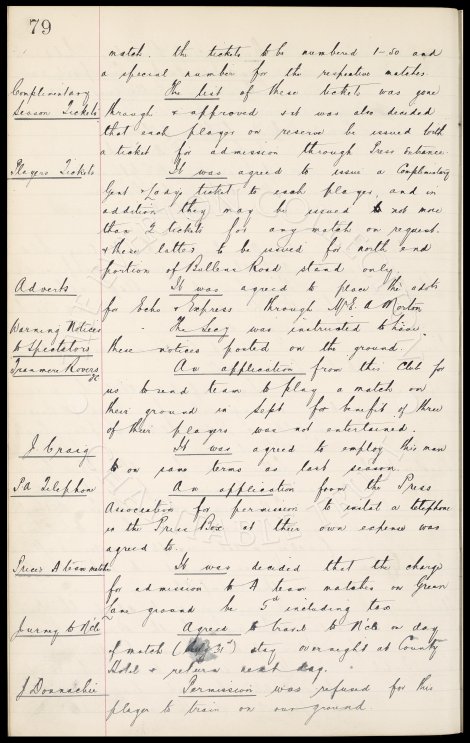 79
match. the tickets to be numbered 1-50 and
a special number for the respective matches.
Complimentary
Season Tickets
The list of these tickets was gone
through & approved & it was also decided
that each player on reserve be issued with
a ticket for admission through Press Entrance.
Players Tickets
It was agreed to issue a Complimentary
Gent & Lady ticket to each player, and in
addition they may be issued to not more
than 2 tickets for any match on request.
& these latter to be issued for north end
portion of Bullens Road stand only.
Adverts
It was agreed to place the adts
for Echo & Express through Mr E. A Morton
Warning Notices
to Spectators
The Secy was instructed to have
these notices posted on the ground.
Tranmere Rovers
FC
An application from this Club for
us to send team to play a match on
their ground in Sept for benefit of three
of their players was not entertained.
J Craig
It was agreed to employ this man
on same terms as last season.
P.A Telephone
An application from the Press
Association for permission to instal a telephone
in the Press Box at their own expense was
agreed to.
Prices A team matches
It was decided that the charge
for admission to A team matches on Green
Lane ground be 5d including tax
Journey to N'cle
Agreed to travel to N'cle on day
of match (Aug 31st) stay overnight at County
Hotel & return next day.
J Donnachie
Permission was refused for this
player to train on our ground.